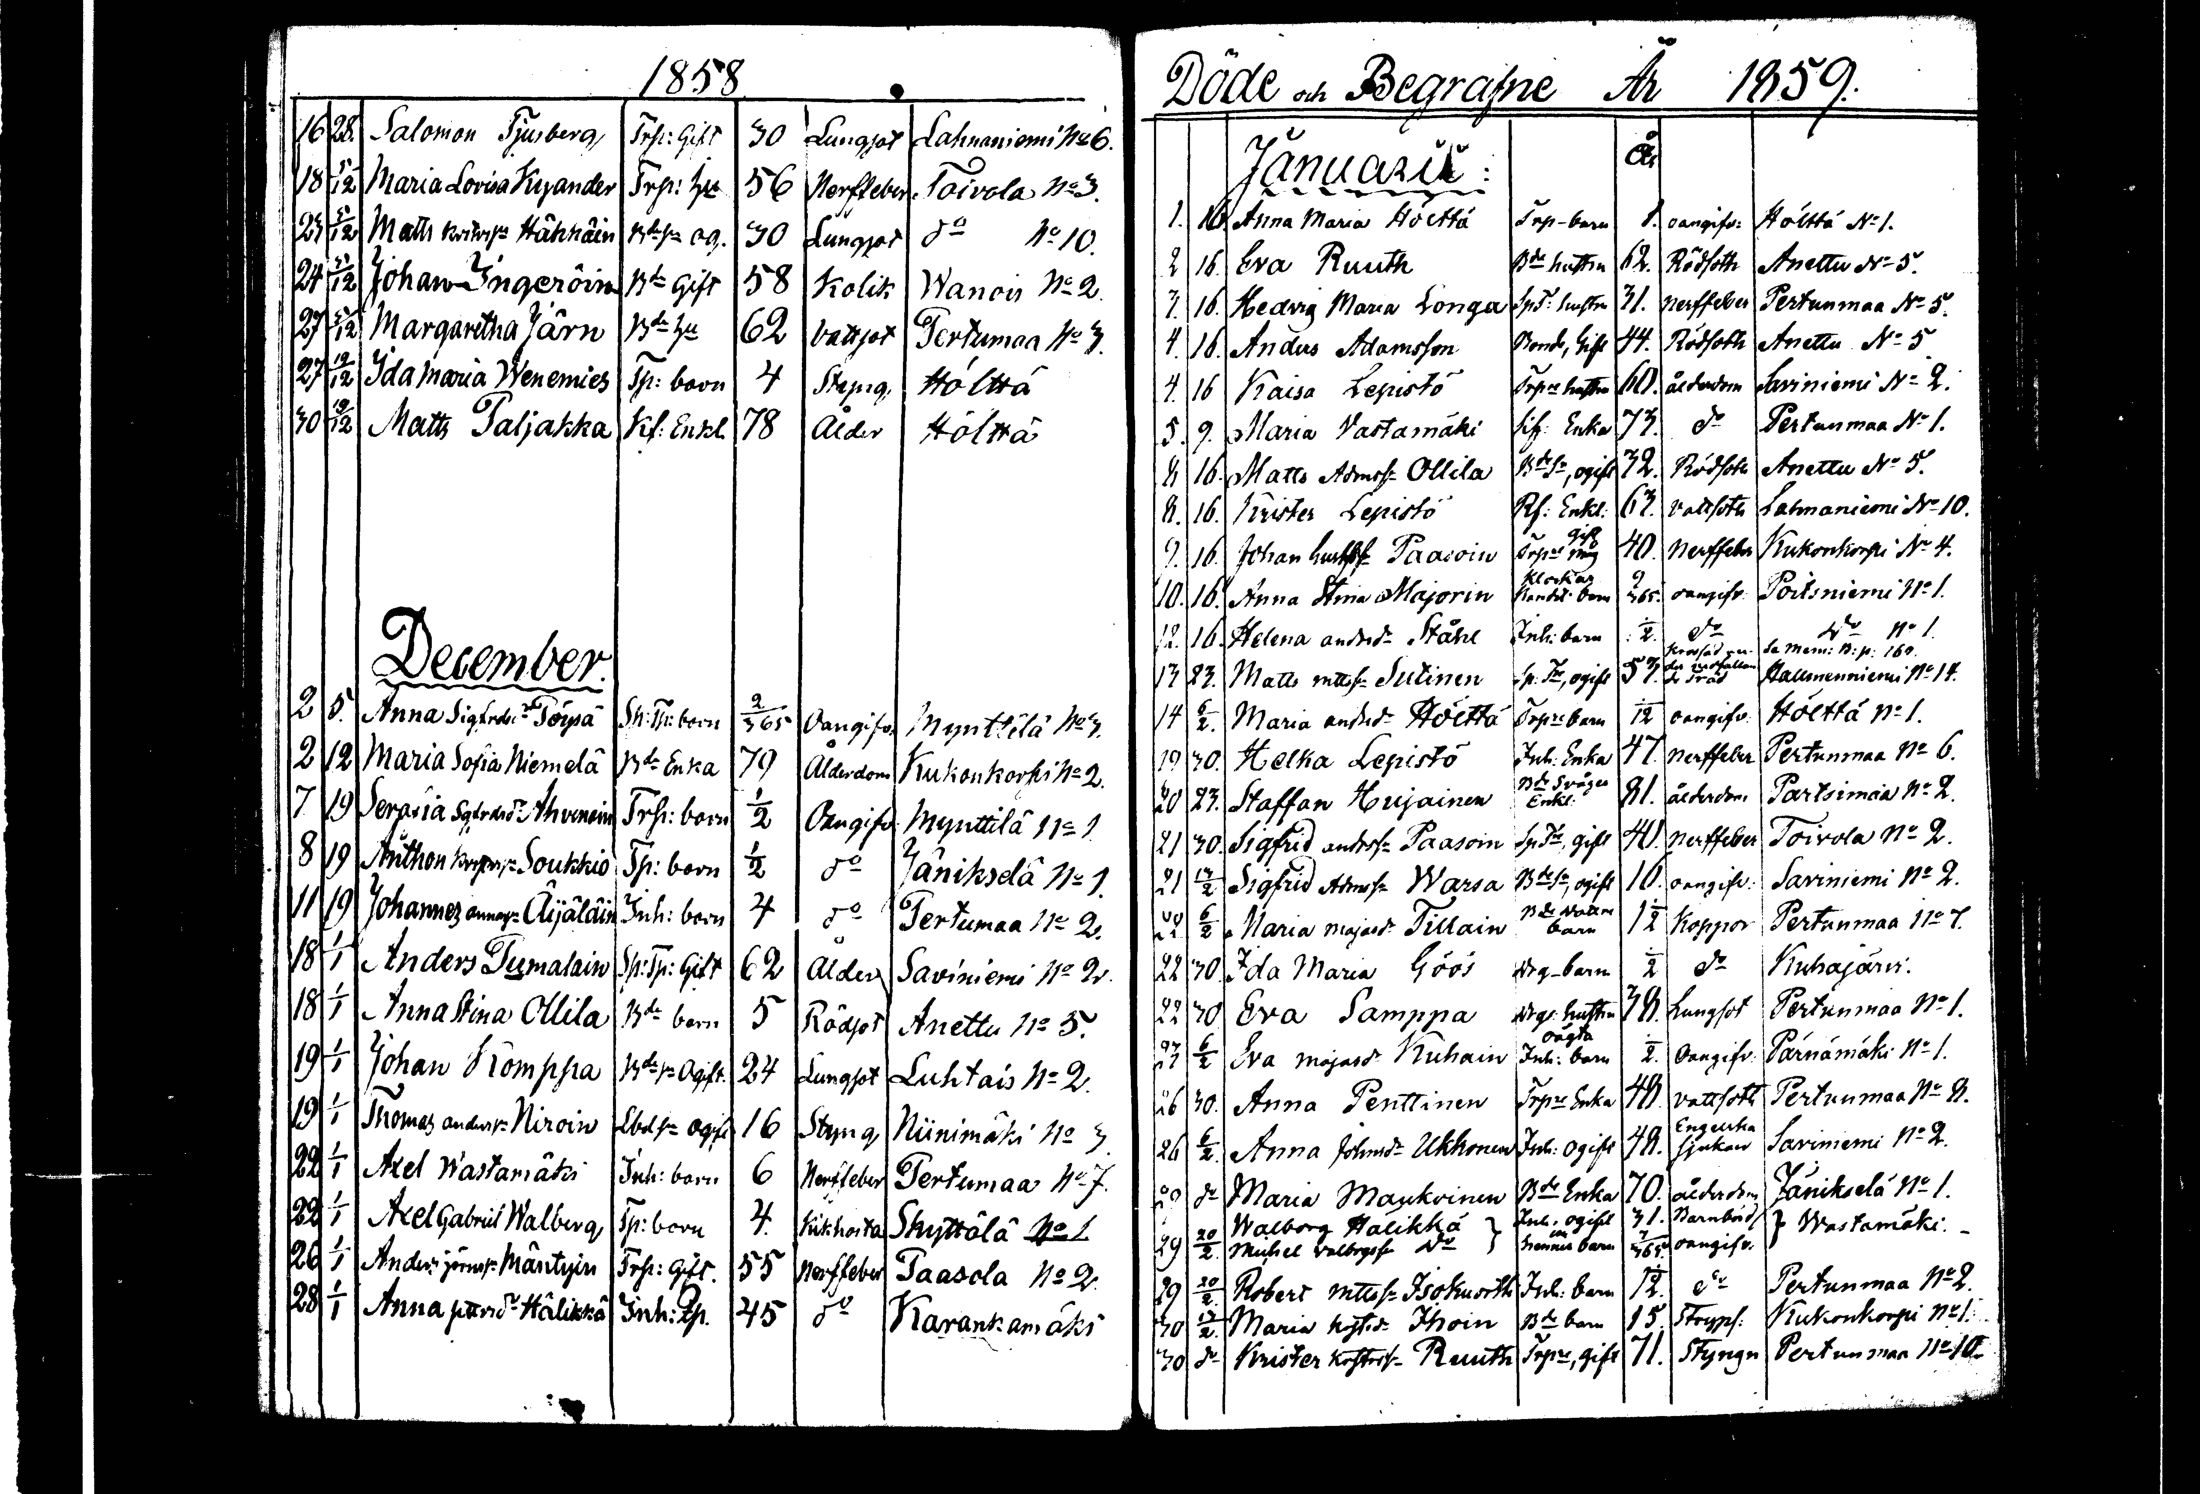 1858
16 28. Salomon Tjusberg Trp: Gift 30 Lungsot Lahnaniemi No 6.
18 5/12 Maria Lovisa Kyander Trp: hu 56 Nerffeber Toivola No 3.
23 5/12 Matts Häkkäin Bde sn og. 30 Lungsot do No 10.
24 5/12 Johan Ingeröin Bde Gift 58 Kolik Wanois No 2
27 5/12 Margaretha Järn Bde hu 62 Vattsot Pertumaa No 3.
27 12/12 Ida Maria Wenemies Tp: barn 4 Styng. Hölttä
30 19/12 Matts Paljakka Kf: Enkl. 78 Ålder Hölttä
December.
2 5. Anna Sigfrdsdr Töysä Sp: Tp: barn 2/365 Oangifv. Mynttilä No 3.
2 12 Maria Sofia Niemelä Bde Enka 79 Ålderdom Kukonkorpi No 2.
7 19 Serafia Ahvenain Trp: barn 1/2 Oangifv. Mynttilä No 1
8 19 Anthon Soukkio Tp: barn 1/2 do Jänikselä No 1.
11 19 Johannes Äijäläin Inh: barn 4 do Pertumaa No 2.
18 1/1 Anders Tumalain Sp: Tp: Gift 62 Ålder Saviniemi No 2.
18 1/1 Anna Stina Ollila Bde barn 5 Rödsot Anettu No 5.
19 1/1 Johan Komppa Bde sn Ogift. 24 Lungsot Luhtais No 2.
19 1/1 Thomas anderssn Niroin ogift 16 Styng Niinimäki No 3
22 1/1 Axel Wastamäki Inh: barn 6 Nerffeber Pertumaa No 7.
22 1/1 Axel Gabriel Walberg Tp: barn 4. Kikhosta Skyttälä No 1
26 1/1 Anders Mäntyin Trp: Gift. 55 Nerffeber Paasola No 2
28 1/1 Anna Hälikkä Inh: 45 do Karankamäki
Döde och Begrafne År 1859.
Januarii: År
1. 16 Anna Maria Hölttä Trp-barn 1. oangifv: Hölttä No 1.
2 16. Eva Ruuth Bde hustru 62. Rödsoth Anettu No 5.
3. 16. Hedvig Maria Longa SpT: hustru 31. nerffeber Pertunmaa No 5.
4. 16. Andus Adamsson Bonde, Gift 44. Rödsoth Anettu No 5
4. 16 Kaisa Lepistö Trpre hustru 60. ålderdom Saviniemi No 2.
5. 9. Maria Vastamäki Enka 73. do Pertunmaa No 1.
8 16. Matts Admssn Ollila Bde sn, ogift 32. Rödsoth Anettu No 5.
8. 16. Krister Lepistö Rf: Enkl: 63. vattsoth Lahnaniemi No 10.
9. 16. Johan Paasoin Trpre gift 40. nerffeber Kukonkorpi No 4.
10. 16. Anna Stina Majorin Klockar barn 9/365. oangifv: Poitsniemi No 1.
12. 16. Helena andrsdr Ståhl Inh: barn 1/2. do do No 1.
13 23. Matts mttssn Sutinen Sp. Tre, ogift 57. Hallmenniemi No 14.
14 6/2. Maria andrsdr Hölttä Trpre barn 1/12 oangifv. Hölttä No 1.
19 30. Helka Lepistö Inh: Enka 47. nerffeber Pertunmaa No 6.
20 23. Staffan Hujainen Bde Svåger Enkl: 81. ålderdom Partsimaa No 2.
21 30. Sigfrid andrssn Paasoin SpTre, gift 40. nerffeber Toivola No 2.
21 13/2 Sigfrid Admssn Warsa Bde sn, ogift 16. oangifv: Saviniemi No 2.
22 6/2 Maria majasdr Tillain barn 1 1/2 Koppor Pertunmaa No 7.
22 30. Ida Maria Göös barn 1/2 do Kuhajärvi.
22 30 Eva Samppa hustru 38. Lungsot Pertunmaa No 1.
23 6/2 Eva majasdr Kuhain oägta Inh: barn 1/2. Oangifv: Pärnämäki No 1.
26 30. Anna Penttinen Trpre Enka 48. vattsoth Pertunmaa No 8.
26 6/2. Anna Johnsdr Ukkonen Inh: ogift 48. Engelska sjukan Saviniemi No 2.
29 do Maria Maukoinen Bde Enka 70. ålderdom Jänikselä No 1.
29 20/2. Walborg Halikkä Inh: ogift 31. Barnbörd } Wastamäki. -
Michel Walborgssn do } barn 7/365. oangifv.
29 20/2. Robert mttssn Isokuortti Inh: barn 1/2. do Pertunmaa No 2.
30 13/2. Maria Ihoin Bde barn 15. Strypsj. Kukonkorpi No 1.
30 do Krister Ruuth Trpre, gift 71. Styngn Pertunmaa No 10